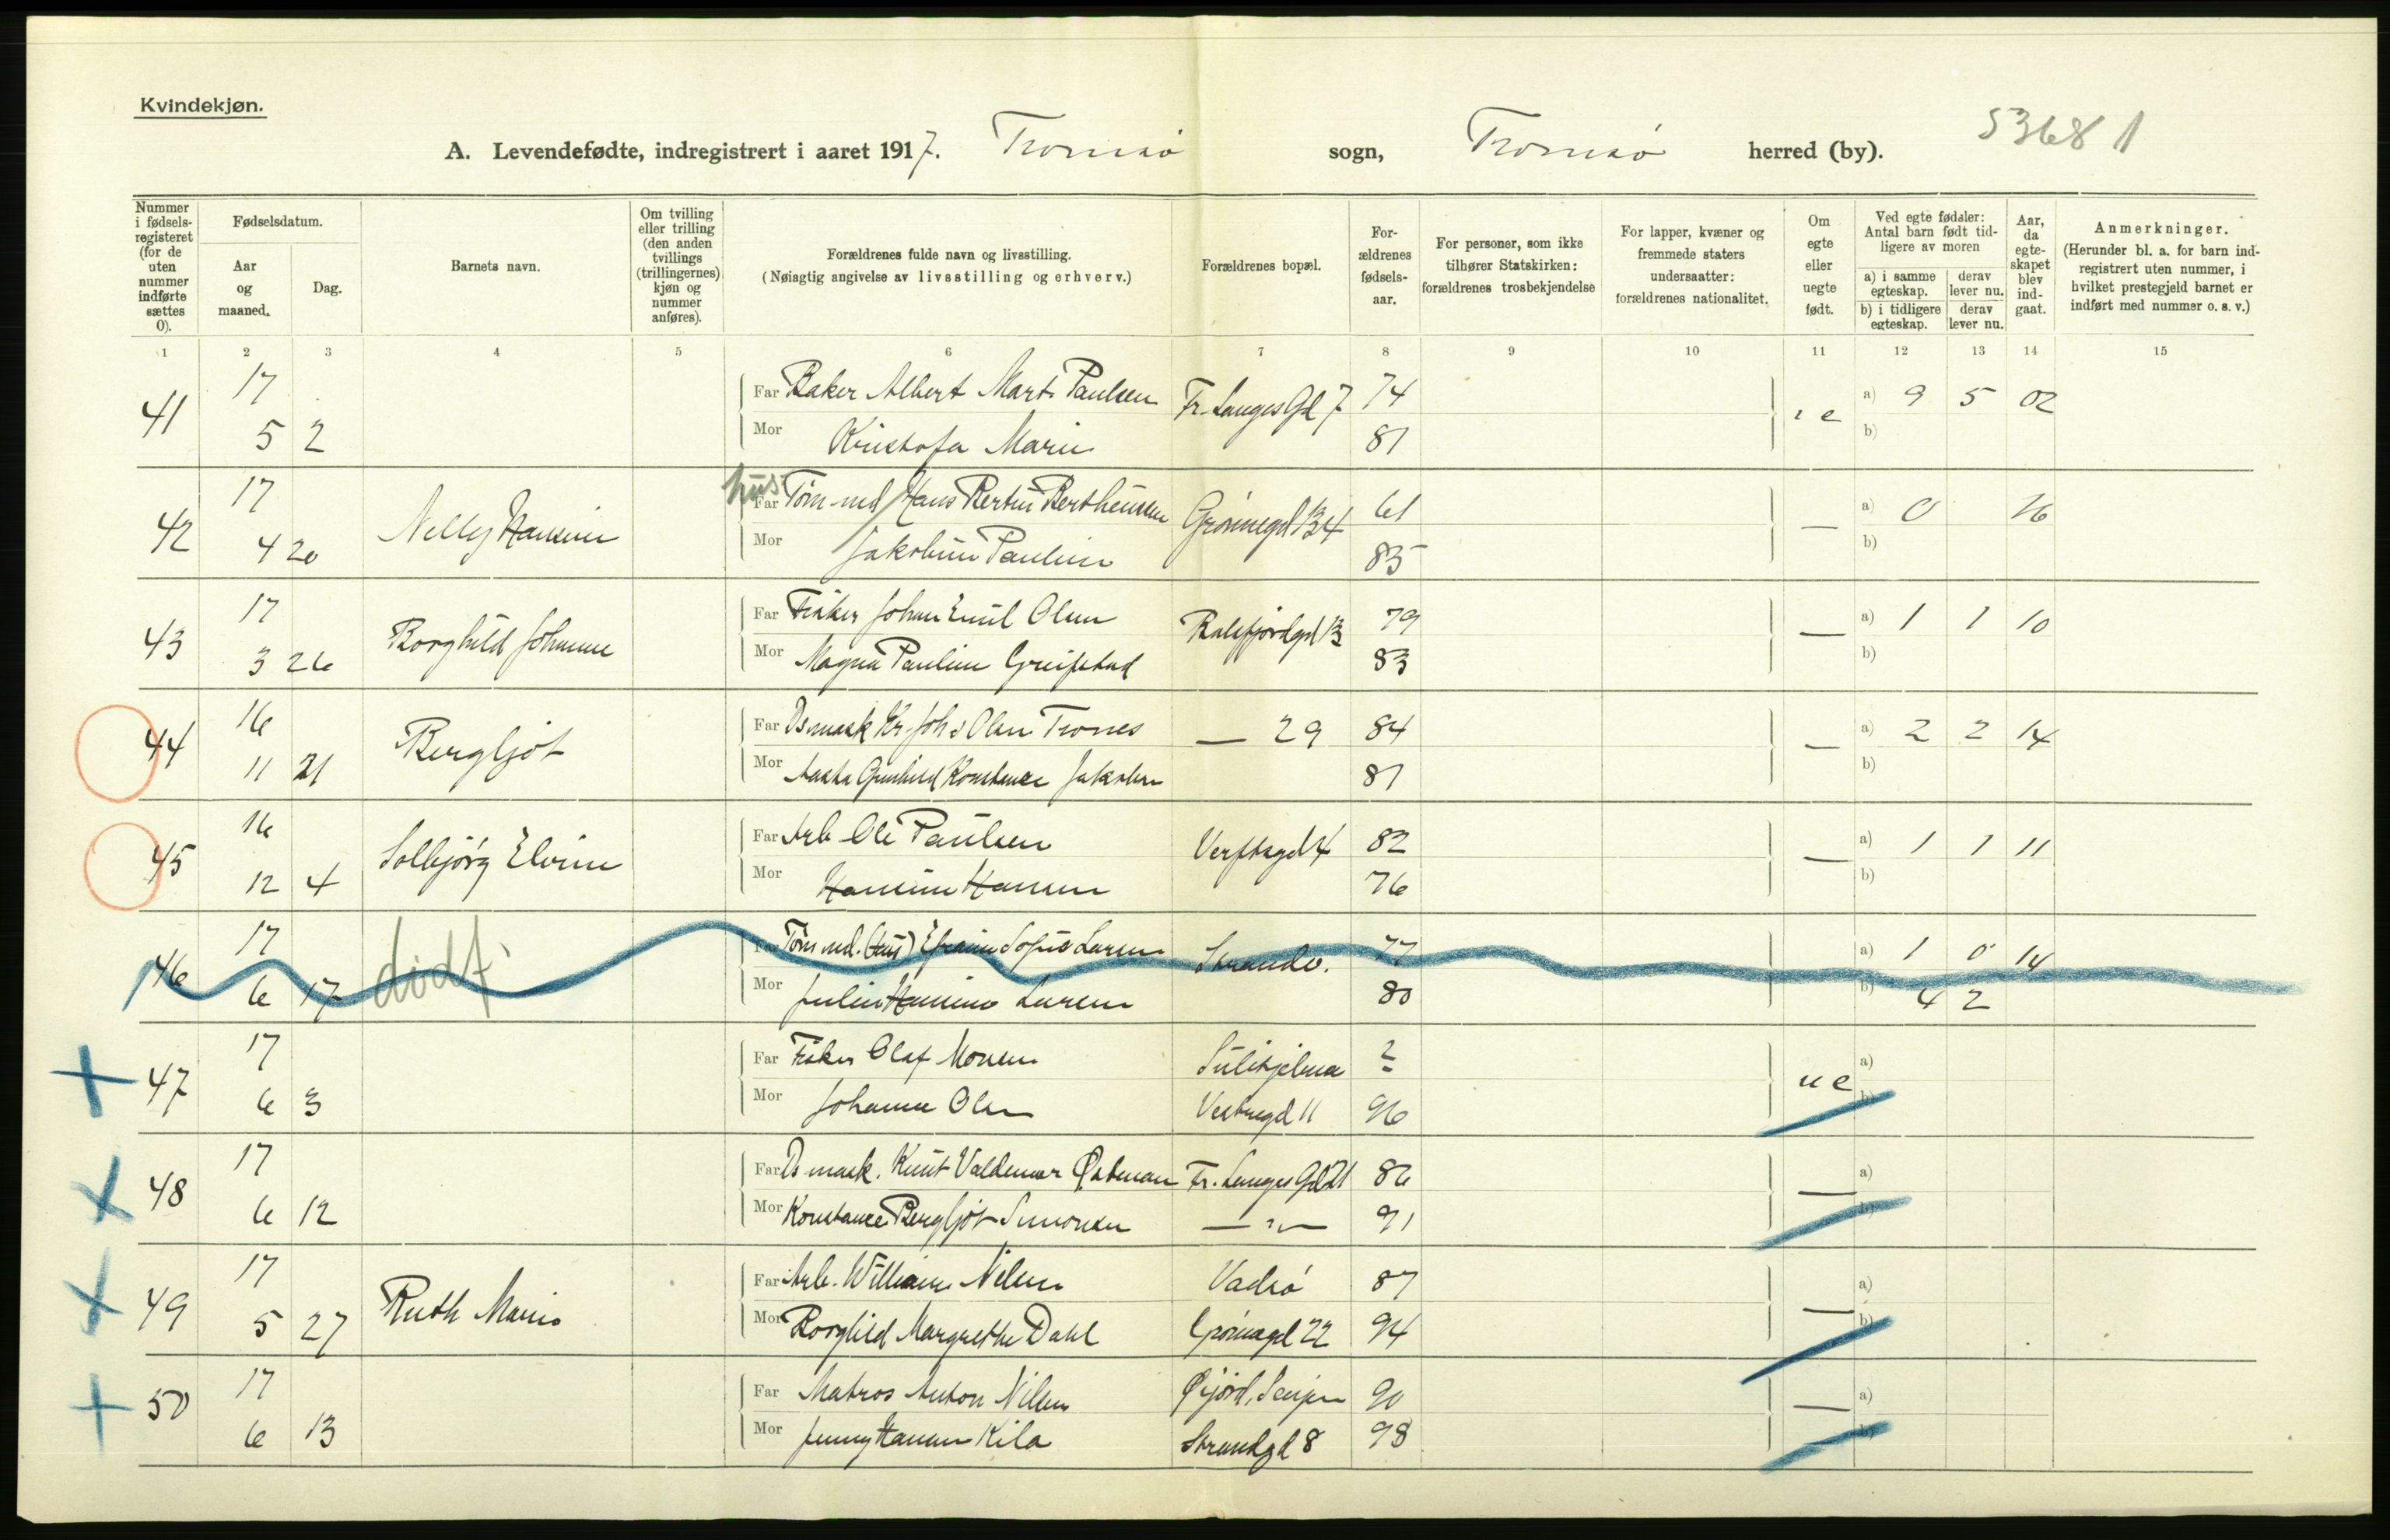 Kvindekjøn.
A. Levendefødte, indregistrert i aaret 1917. Tromsø sogn, Tromsø herred (by). 53681
Nummer i fødsels-registeret (for de uten nummer indførte sættes 0).
Fødselsdatum.
Aar og maaned.
Dag.
Barnets navn.
Om tvilling eller trilling (den anden tvillings (trillingernes) kjøn og nummer anføres).
Forældrenes fulde navn og livsstilling.
(Nøiagtig angivelse av livsstilling og erhverv.)
Forældrenes bopæl.
For-ældrenes fødsels-aar.
For personer, som ikke tilhører Statskirken: forældrenes trosbekjendelse
For lapper, kvæner og fremmede staters undersaatter: forældrenes nationalitet.
Om egte eller uegte født.
Ved egte fødsler: Antal barn født tid-ligere av moren
a) i samme egteskap.
derav lever nu.
b) i tidligere egteskap.
derav lever nu.
Aar, da egte-skapet blev ind-gaat.
Anmerkninger.
(Herunder bl. a. for barn ind-registrert uten nummer, i hvilket prestegjeld barnet er indført med nummer o. s. v.)
1 2 3 4 5 6 7 8 9 10 11 12 13 14 15
41 17 Far Baker Albert Mart. Paulsen Fr. Langes Gd 7 74 e a) 9 5 02
5 2 Mor Kristofa Marie 81 b)
hus
42 17 Nelly Hansine Far Tøm-md Hans Bertin Bertheussen Grønnegd 134 61 — a) 0 16
4 20 Mor Jakobine Pauline 85 b)
43 17 Borghild Johanne Far Fisker Johan Emil Olsen Balsfjordgd 13 79 — a) 1 1 10
3 26 Mor Magna Pauline Greipstad 83 b)
44 16 Bergljot Far Dsmask Kr. Joh s Olsen Trones — 29 84 — a) 2 2 14
11 21 Mor Aasta Gunhild Konstance Jakobsen 81 b)
45 16 Solbjørg Elvine Far Arb Ole Paulsen Verftsgd 4 82 — a) 1 1 11
12 4 Mor Hansine Hansen 76 b)
46 17 dødf. Far Tøm md. (hus) Efraim Sofus Larsen Strandv. 77 a) 1 0 14
6 17 Mor Julie Hansine Larsen 80 b) 4 2
47 17 Far Fisker Olaf Monsen Sulitjelma ? ue a)
6 3 Mor Johanne Olsen Vestregd 11 96 b)
48 17 Far Ds mask. Knut Valdemar Østman Fr. Langes Gd 21 86 — a)
6 12 Mor Konstance Bergljot Simonsen — " — 91 b)
49 17 Ruth Marie Far Arb. William Nilsen Vadsø 87 — a)
5 27 Mor Borghild Margrethe Dahl Grønnegd 22 94 b)
50 17 Far Matros Anton Nilsen Øifjord, Senjen 90 — a)
6 13 Mor Jenny Hansen Kila Strandgd 8 98 b)